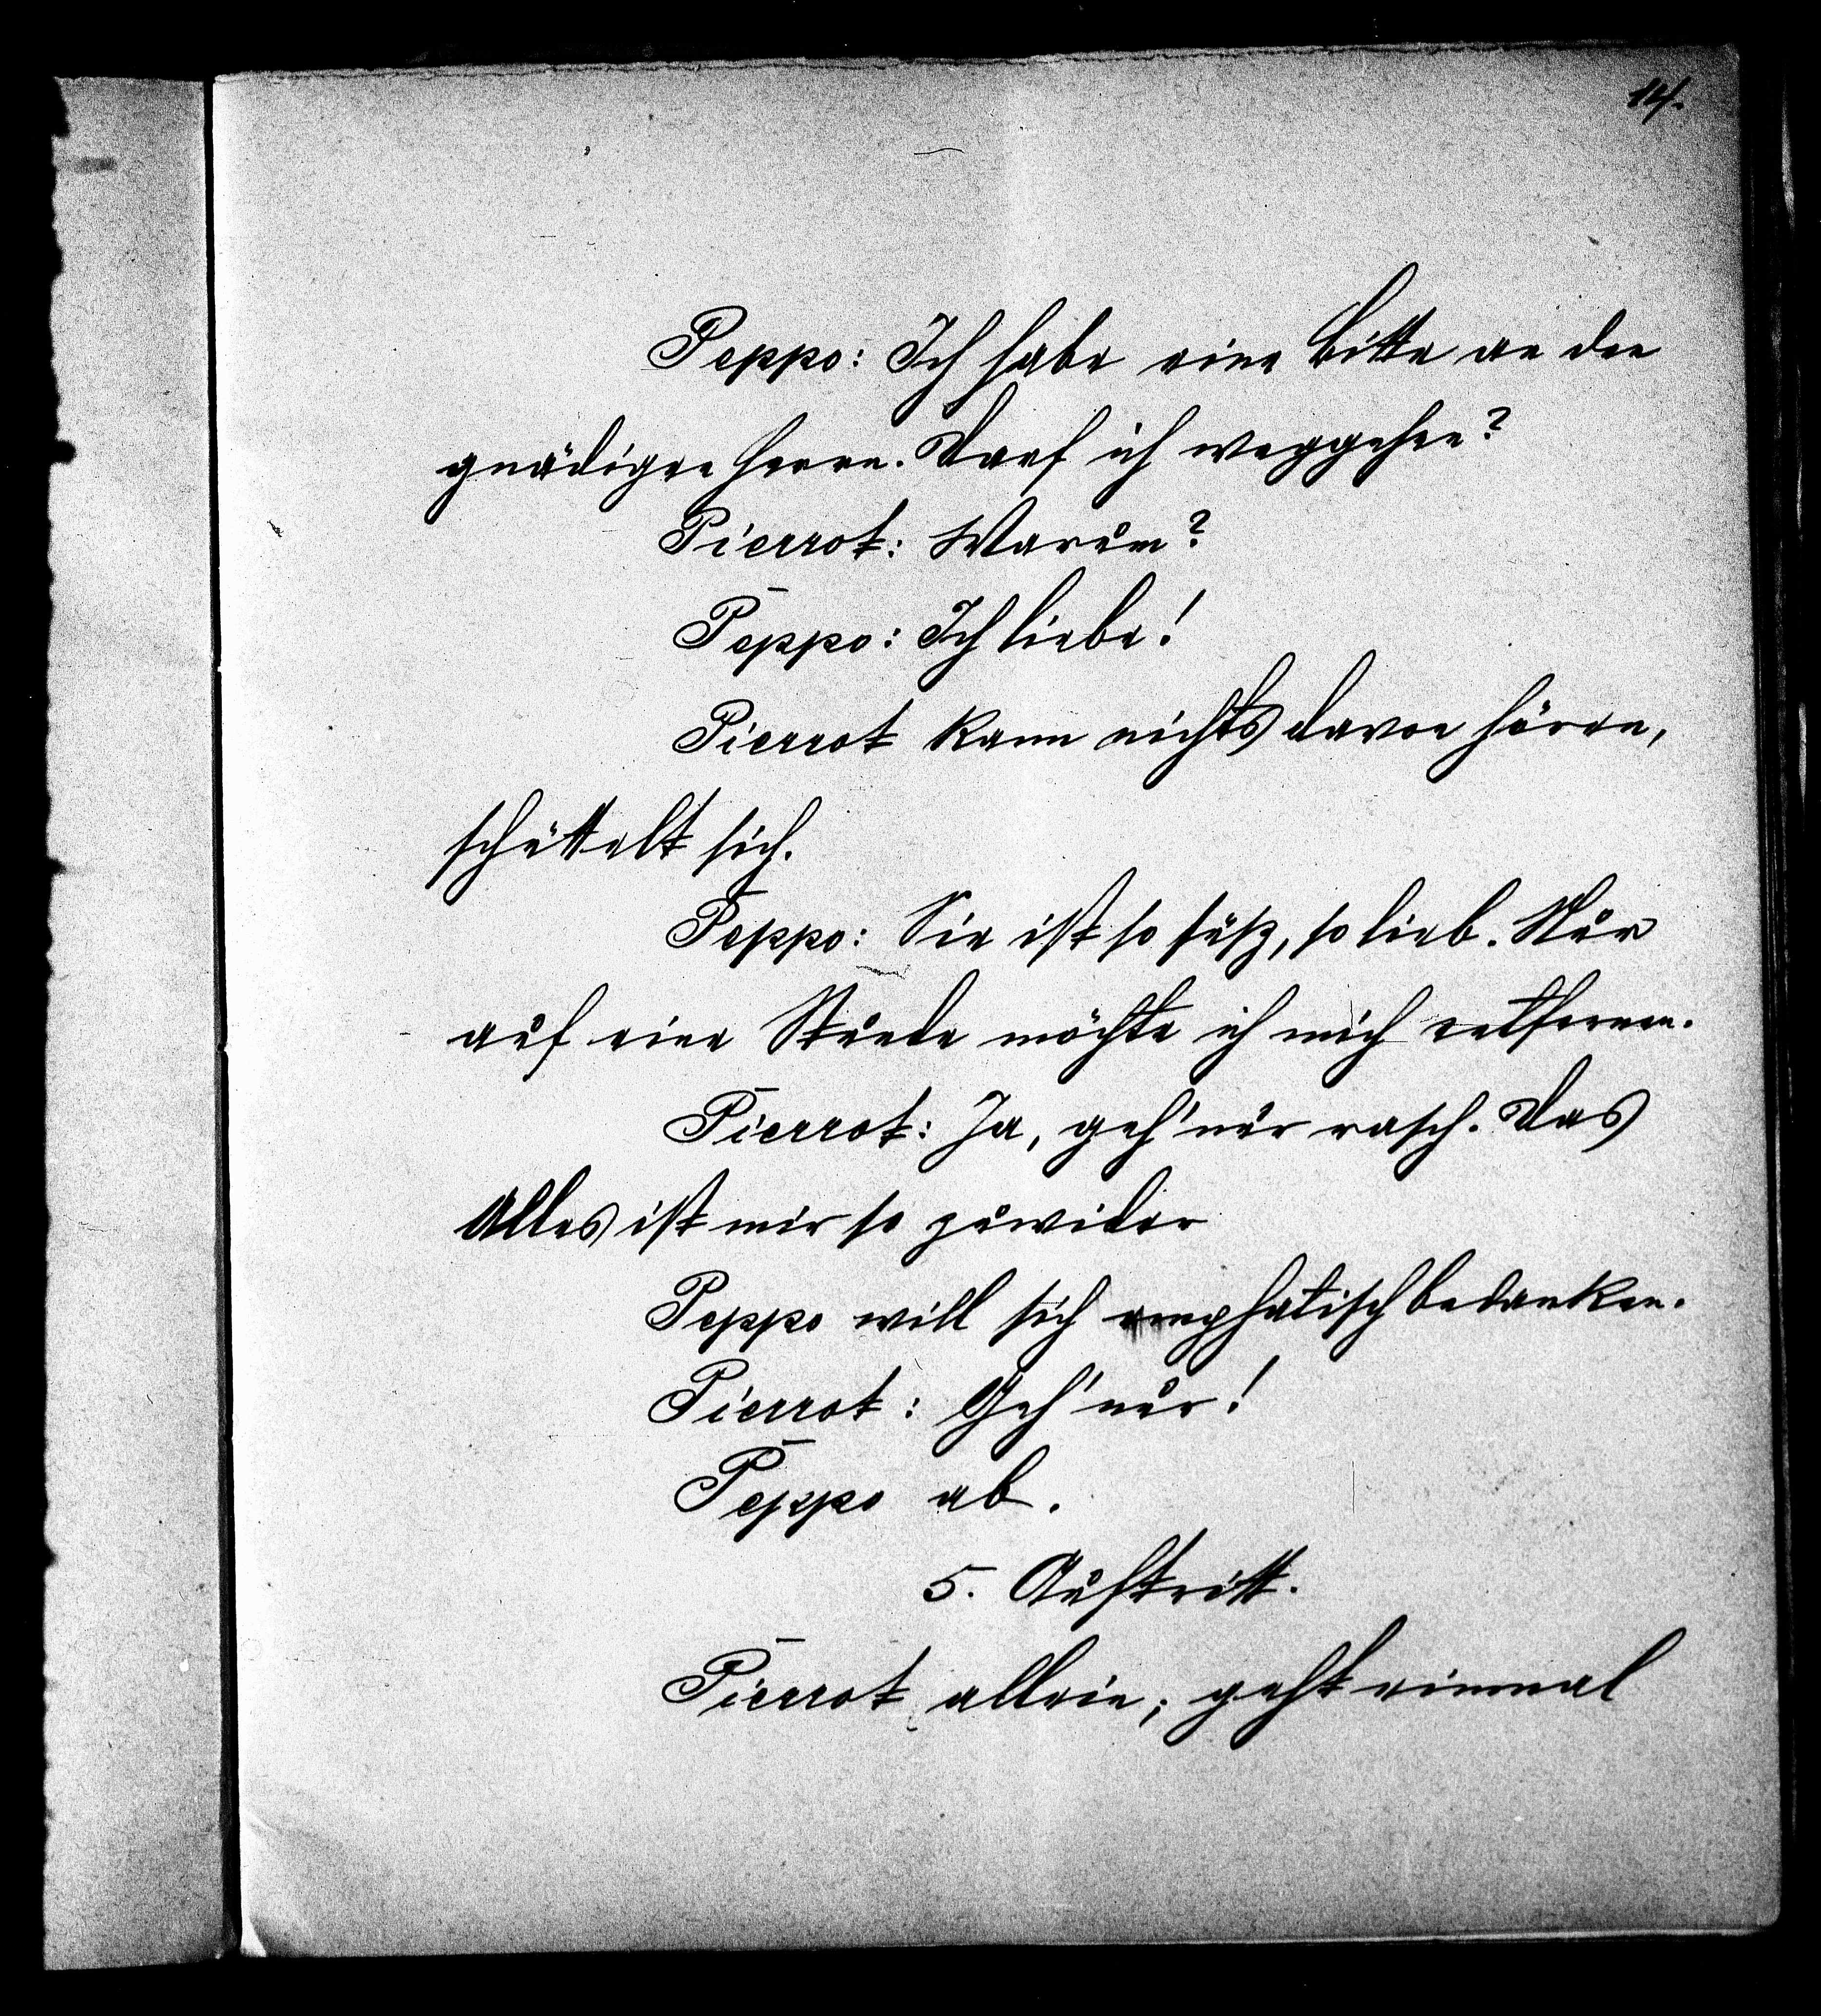 14.
Peppo: Ich habe eine Bitte an den
gnädigen Herrn. Darf ich weggehen?
Pierrot: Warum?
Peppo: Ich liebe!
Pierrot kann nichts davon hören,
schüttelt sich.
Peppo: Sie ist so süß, so lieb. Nur
auf eine Stunde möchte ich mich entfernen.
Pierrot: Ja, geh' nur rasch. Das
Alles ist mir so zuwider
Peppo will sich emphatisch bedanken.
Pierrot: Geh' nur!
Peppo ab.
5. Auftritt.
Pierrot allein; geht einmal